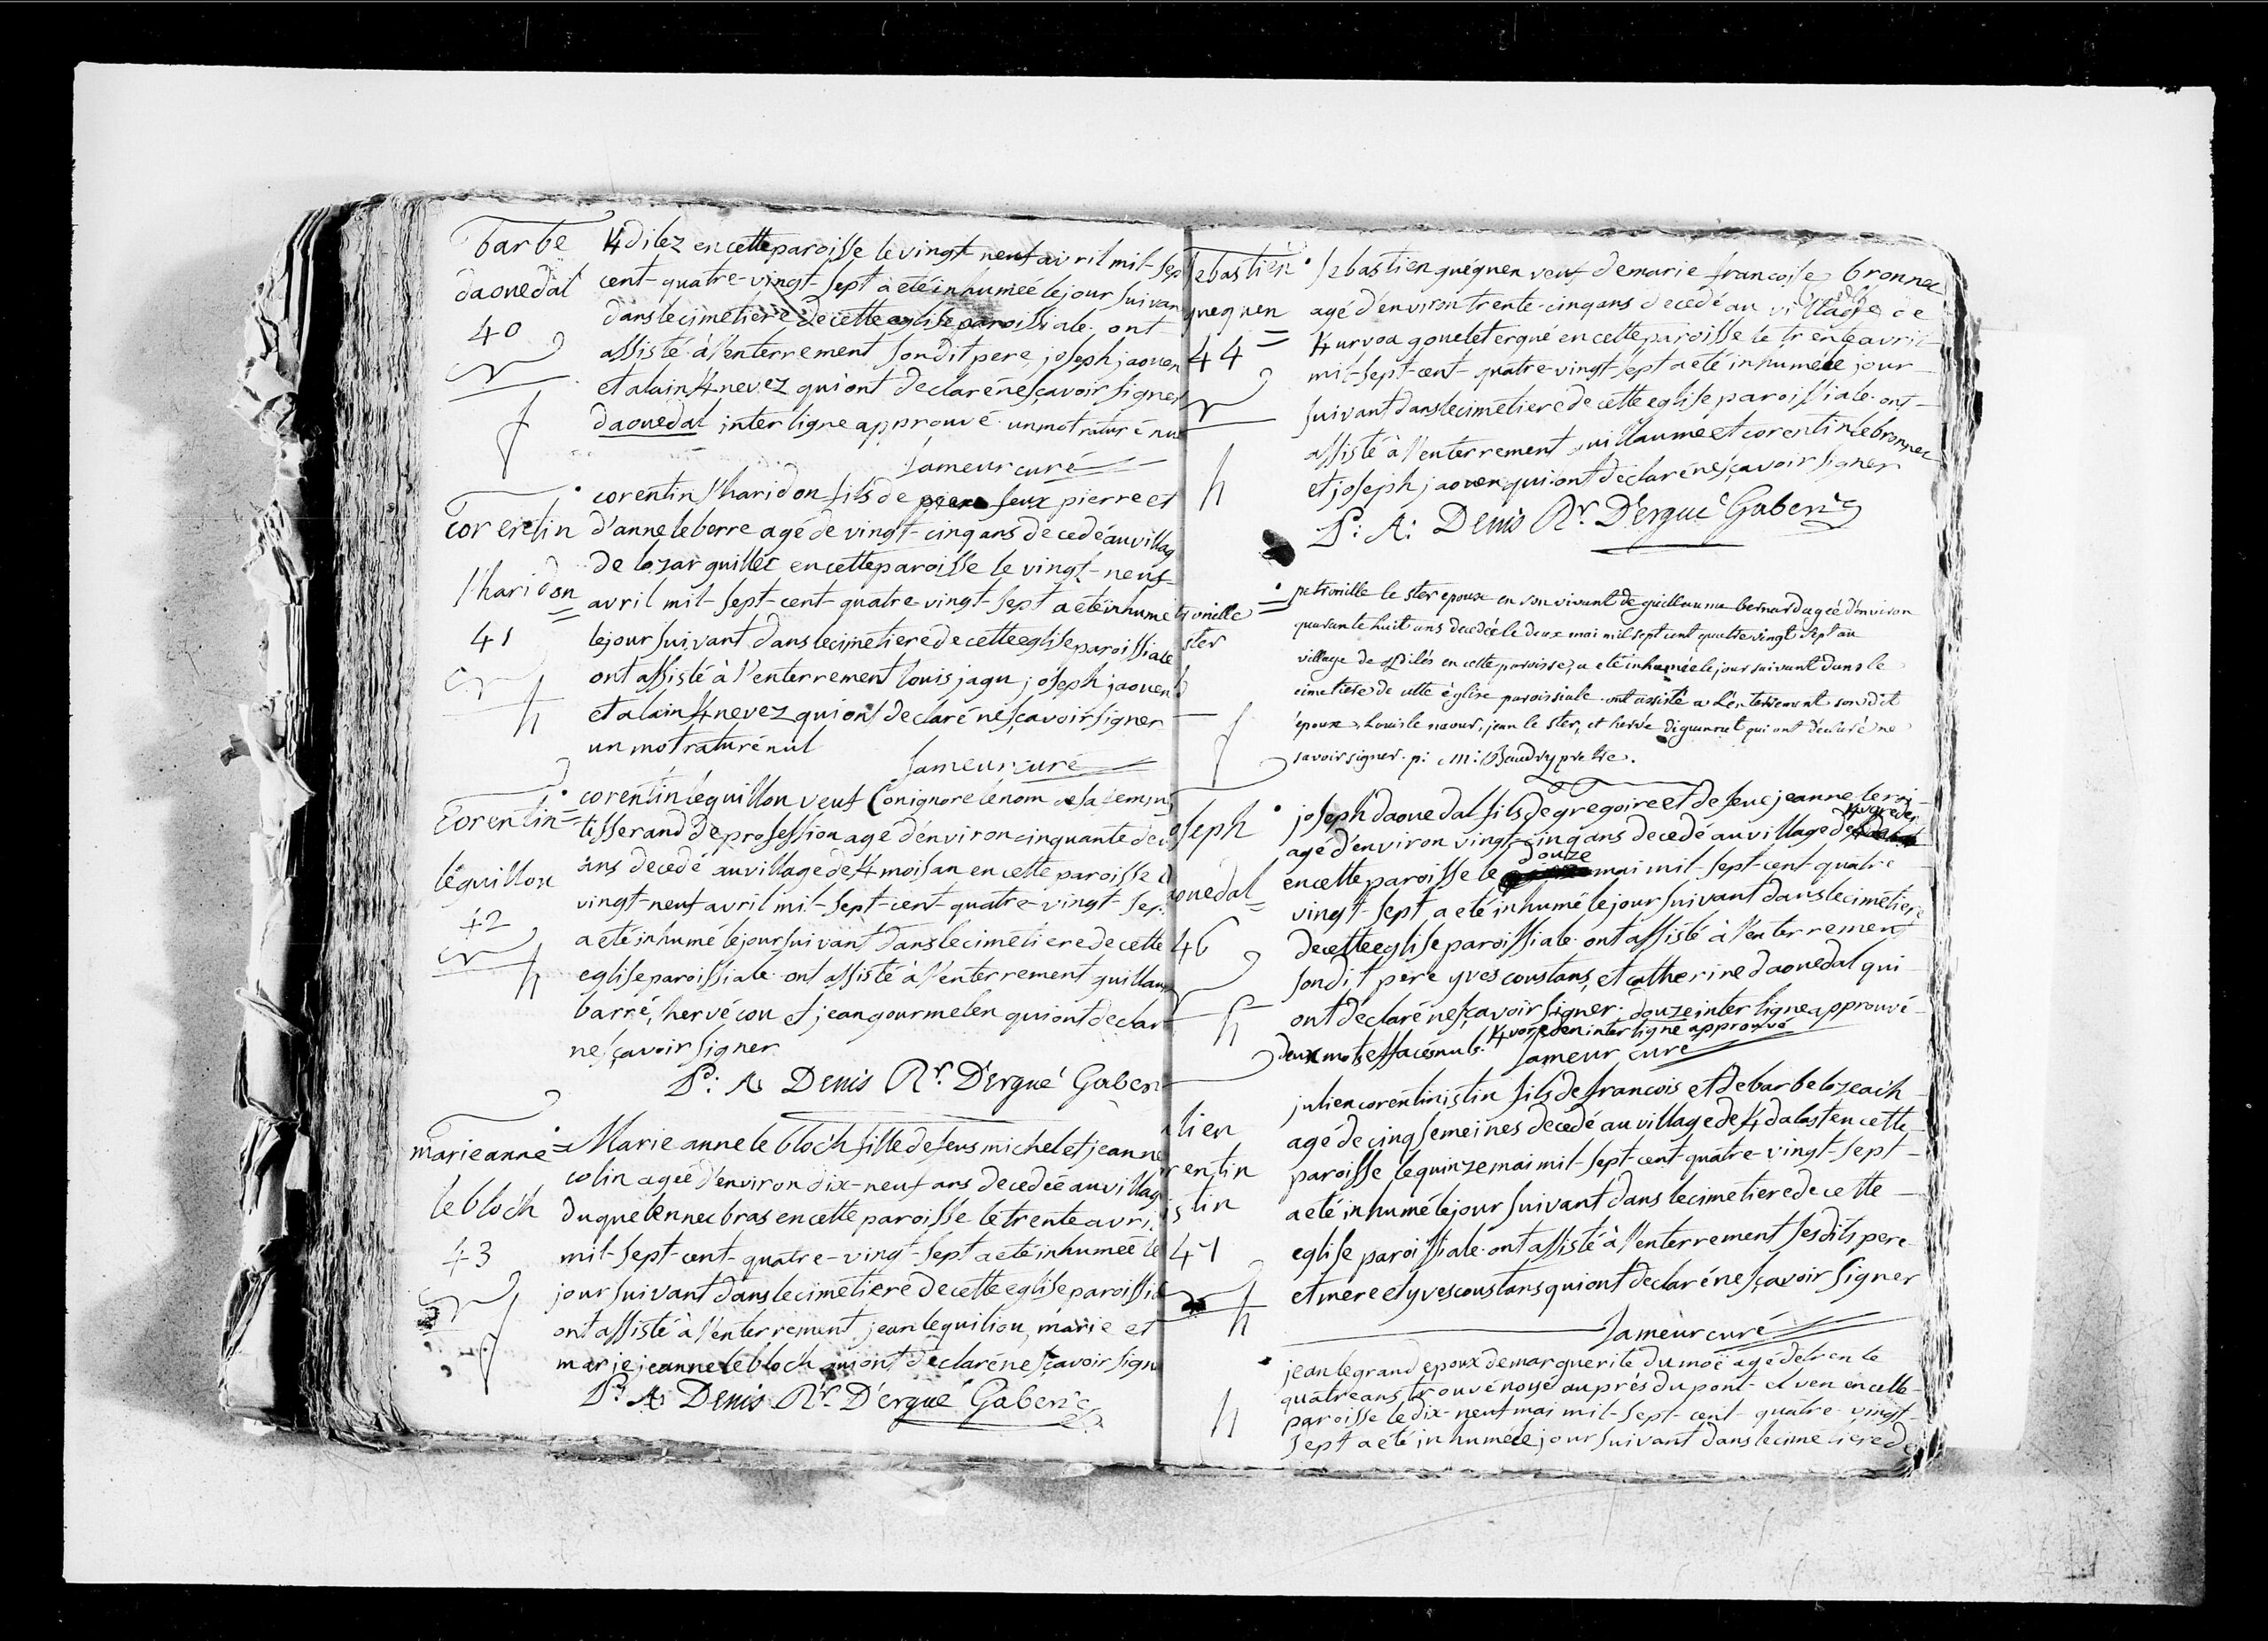 barbe
daouedal
40
4dilez en cette paroisse le vingt neuf avril mil-sep
cent-quatre-vingt-sept a eté inhumée le jour suivan
dans le cimetiere de cette eglise paroissiale. ont
assisté à l'enterrement sondit pere, joseph jaouen
et alain 4nevez qui ont declaré ne sçavoir signer
daouedal interligne approuvé un mot raturé nul
Lameur curé
corentin
l'haridon
41
corentin l'haridon fils de feux pierre et
d'anne leberre agé de vingt-cinq ans decedé au villag
de lozarguillec en cette paroisse le vingt-neuf
avril mil-sept-cent-quatre-vingt-sept a eté inhumé
le jour suivant dans le cimetiere de cette eglise paroissiale
ont assisté à l'enterrement louis jagu, joseph jaouen
et alain 4nevez qui ont declaré ne sçavoir signer
un mot raturé nul
Lameur curé
Corentin
léguillon
42
corentin léguillon veuf (on ignore le nom de sa femm
tisserand de profession agé d'environ cinquante deu
ans decedé au village de 4moisan en cette paroisse
vingt-neuf avril mil-sept-cent-quatre-vingt-sep
a eté inhumé le jour suivant dans le cimetiere de cette
eglise paroissiale. ont assisté à l'enterrement guillaum
barré, hervé cou et jean gourmelen qui ont declar
ne sçavoir signer
P: A Denis Rr. D'ergué Gaberic
marie anne
le bloch
43
Marie anne le bloch fille de feus michel et jeanne
colin agée d'environ dix-neuf ans decedée au villag
du quelennec bras en cette paroisse le trente avri
mil-sept-cent-quatre-vingt-sept a eté inhumée le
jour suivant dans le cimetiere de cette eglise paroissia
ont assisté à l'enterrement jean lequiliou, marie et
marie jeanne le bloch qui ont declaré ne sçavoir signe
P: A: Denis Rr. D'ergué Gaberic
sebastien
gueguen
44
sebastien guéguen veuf de marie francoise bronnec
agé d'environ trente-cinq ans decedé au village de
4urvoa gouelet ergué en cette paroisse le trente avril
mil-sept-cent-quatre-vingt-sept a eté inhumé le jour
suivant dans le cimetiere de cette eglise paroissiale. ont
assisté à l'enterrement guillaume et corentin le bronnec
et joseph jaouen qui ont déclaré ne sçavoir signer
P: A: Denis Rr. D'ergué Gaberic
tronille
ster
petronille le ster epouse en son vivant de guillaume bernard agée d'environ
quarante huit ans decedée le deux mai mil sept cent quatre vingt sept au
village de en cette paroisse, a eté inhumée le jour suivant dans le
cimetiere de cette église paroissiale. ont assisté a l'enterrement sondit
époux, Louis le naour, jean le ster, et hervé qui ont déclaré ne
savoir signer. p: M: Baudry pretre.
oseph
aouedal
46
joseph daouedal fils de gregoire et de feue jeanne
agé d'environ vingt-cinq ans decedé au village de
douze
en cette paroisse le mai mil-sept-cent-quatre
vingt-sept a eté inhumé le jour suivant dans le cimetiere
de cette eglise paroissiale. ont assisté à l'enterrement
sondit pere yves constans, et catherine daouedal qui
ont déclaré ne sçavoir signer. douze interligne approuvé
deux mots effacés nuls. interligne approuvé
Lameur curé
lien
rentin
istin
47
julien corentin istin fils de francois et de barbe lozeach
agé de cinq semeines decedé au village de 4dalast en cette
paroisse le quinze mai mil-sept-cent-quatre-vingt-sept
a eté inhumé le jour suivant dans le cimetiere de cette
eglise paroissiale. ont assisté à l'enterrement sesdits pere
et mere et yves constans qui ont declaré ne sçavoir signer
Lameur curé
jean le grand epoux de marguerite dumoë agé de trente
quatre ans trouvé noyé auprés du pont-elven en cette
paroisse le dix-neuf mai mil-sept-cent-quatre-vingt-
sept a eté inhumé le jour suivant dans le cimetiere de